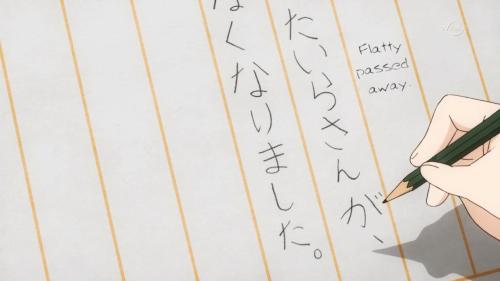 たいらさんが、
なくなりました。
Flatty
passed
away.